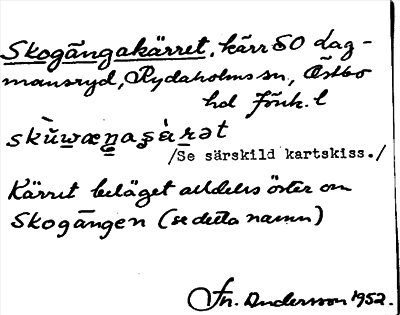 Skogångakärret, kärr SO dag-
mansryd, Rydaholms sn, Östbo
hd Jönk. l
skùwæŋaʂàrət
/Se särskild kartskiss./
Kärret beläget alldeles öster om
Skogången (se detta namn)
Fr. Andersson 1952.